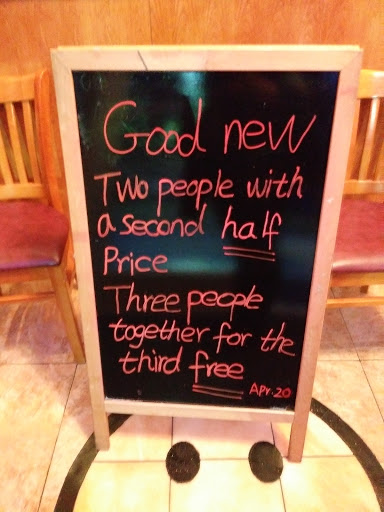 Good new
Two people with
a second half
Price
Three people
together for the
third free
Apr.20